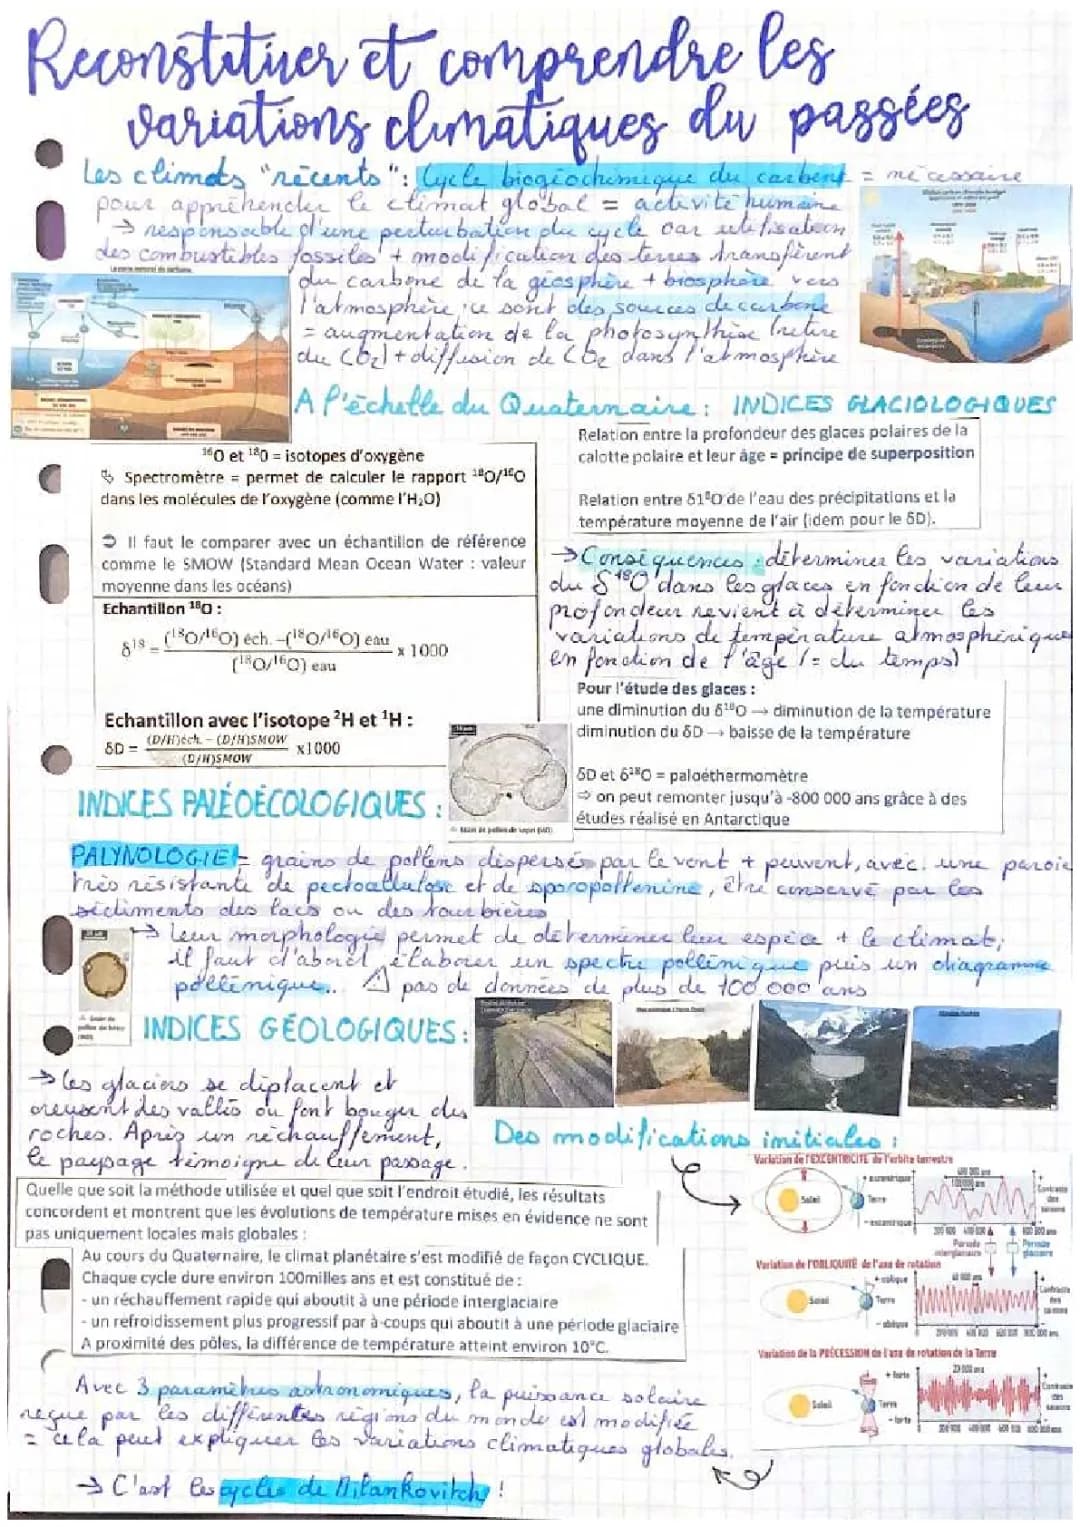 Reconstituer et comprendre les
variations climatiques du passées
Les climats "récents": Cycle biogéochimique du carbent = nécessaire
pour appréhender le climat global = activité humaine
→ responsable d'une perturbation du cycle car utilisation
des combustibles fossiles + modification des terres transfèrent
du carbone de la géosphère + biosphère vers
l'atmosphère, ce sont des sources de carbone
= augmentation de la photosynthèse (retire
du CO2) + diffusion de CO2 dans l'atmosphère
A l'échelle du Quaternaire : INDICES GLACIOLOGIQUES
16O et 18O = isotopes d'oxygène
Spectromètre = permet de calculer le rapport 18O/16O
dans les molécules de l'oxygène (comme l'H2O)
Il faut le comparer avec un échantillon de référence
comme le SMOW (Standard Mean Ocean Water : valeur
moyenne dans les océans)
Relation entre la profondeur des glaces polaires de la
calotte polaire et leur âge = principe de superposition
Relation entre δ18O de l'eau des précipitations et la
température moyenne de l'air (idem pour le δD).
Echantillon 18O :
δ18 = (18O/16O) éch. –(18O/16O) eau x 1000
(18O/16O) eau
Echantillon avec l'isotope 2H et 1H :
δD = (D/H)éch. – (D/H)SMOW x1000
(D/H)SMOW
→ Conséquences : déterminer les variations
du δ18O dans les glaces en fonction de leur
profondeur revient à déterminer les
variations de température atmosphérique
en fonction de l'âge (= du temps)
Pour l'étude des glaces :
une diminution du δ18O → diminution de la température
diminution du δD → baisse de la température
δD et δ18O = paléothermomètre
⇒ on peut remonter jusqu'à -800 000 ans grâce à des
études réalisé en Antarctique
INDICES PALÉOÉCOLOGIQUES :
PALYNOLOGIE = grains de pollens dispersés par le vent + peuvent, avec une paroie
très résistante de pectocellulose et de sporopollenine, être conservé par les
sédiments des lacs ou des tourbières
→ leur morphologie permet de déterminer leur espèce + le climat;
il faut d'abord élaborer un spectre pollinique puis un diagramme
pollinique.. ⚠ pas de données de plus de 100 000 ans
INDICES GÉOLOGIQUES :
→ les glaciers se déplacent et
creusent des vallés ou font bouger des
roches. Après un réchauffement,
le paysage témoigne de leur passage.
Des modifications initiales :
Quelle que soit la méthode utilisée et quel que soit l'endroit étudié, les résultats
concordent et montrent que les évolutions de température mises en évidence ne sont
pas uniquement locales mais globales :
Au cours du Quaternaire, le climat planétaire s'est modifié de façon CYCLIQUE.
Chaque cycle dure environ 100milles ans et est constitué de :
- un réchauffement rapide qui aboutit à une période interglaciaire
- un refroidissement plus progressif par à-coups qui aboutit à une période glaciaire
A proximité des pôles, la différence de température atteint environ 10°C.
Variation de l'EXCENTRICITE de l'orbite terrestre
+ excentrique
Soleil
Terre
- excentrique
Contraste des saisons
Période interglaciaire
Période glaciaire
Variation de l'OBLIQUITÉ de l'axe de rotation
+ oblique
Soleil
Terre
- oblique
Contraste des saisons
Variation de la PRÉCESSION de l'axe de rotation de la Terre
+ forte
Soleil
Terre
- forte
Contraste des saisons
Avec 3 paramètres astronomiques, la puissance solaire
reçue par les différentes régions du monde est modifiée
= cela peut expliquer les variations climatiques globales.
→ C'est les cycles de Milankovitch !